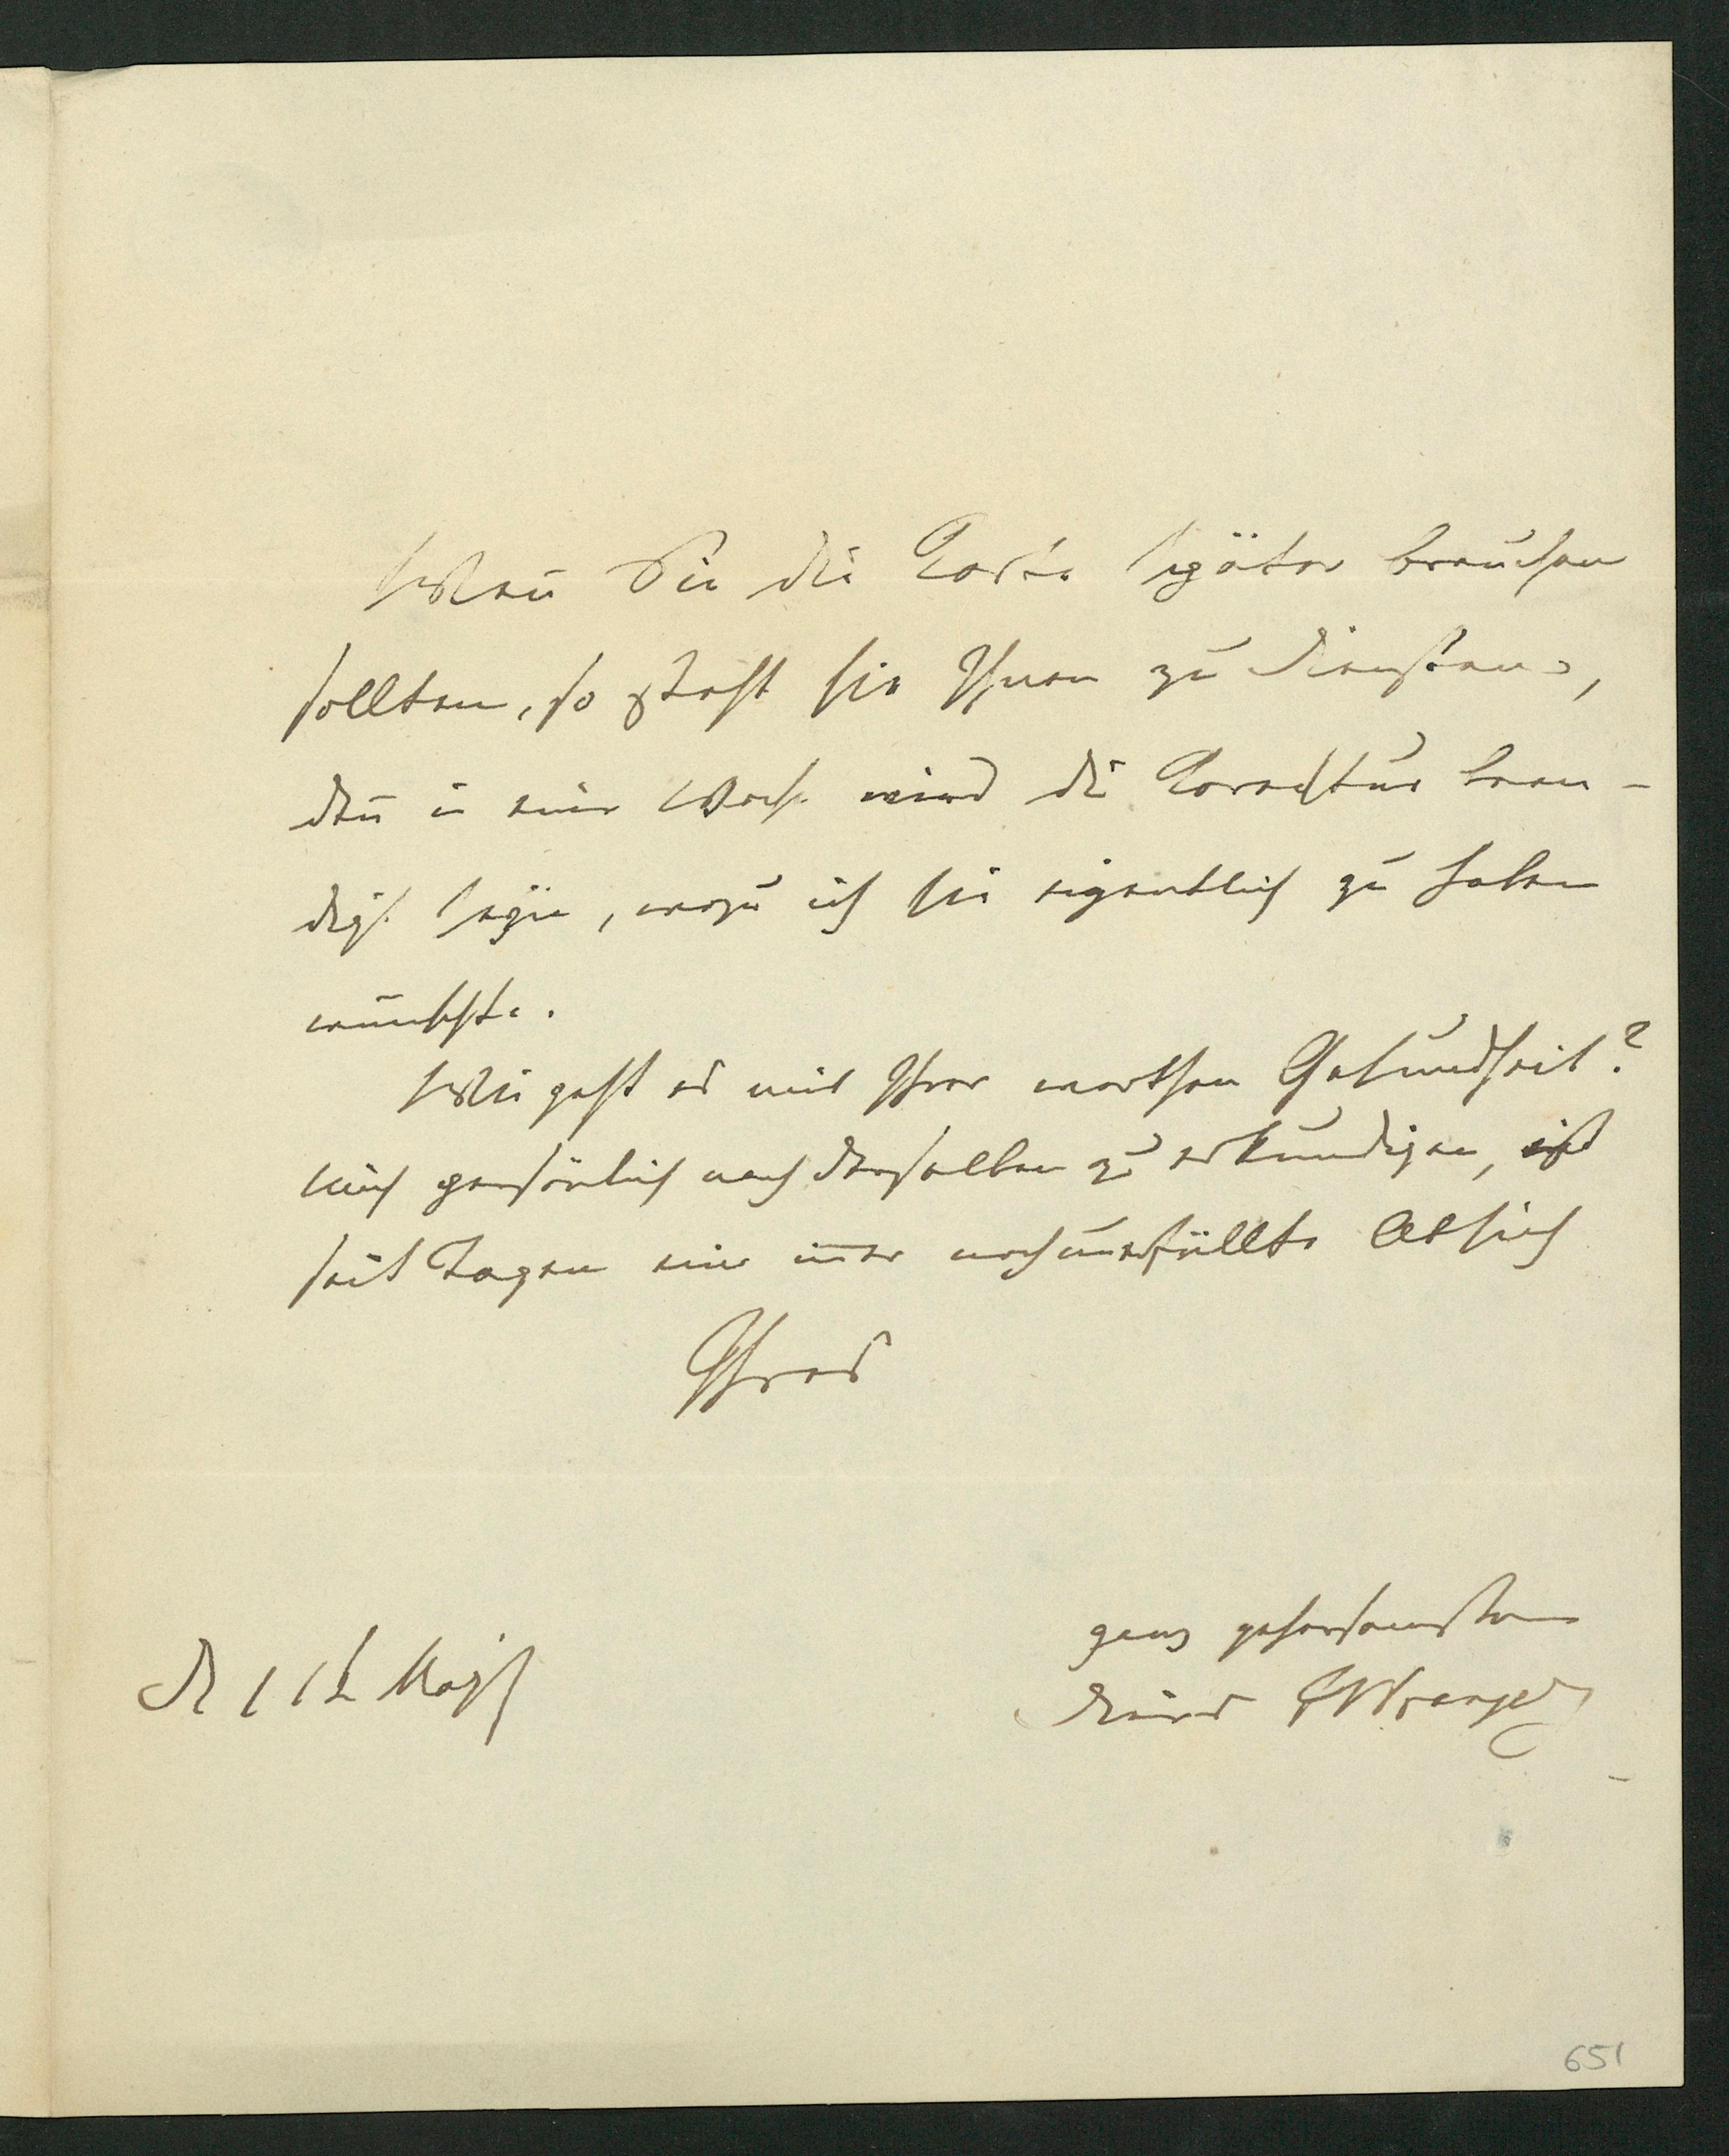 Wen̄ Sie die Carte später brauchen
sollten, so steht sie Ihnen zu Diensten,
den̄ in einer Woche wird die Correctur been-
digt seyn, wozu ich sie eigentlich zu haben
wünschte.
Wie geht es mit Ihrer werthen Gesundheit?
mich persönlich nach derselben zu erkundigen, ist
seit Tagen eine im̄er noch unerfüllte Absich
Ihres
ganz gehorsamsten
d 11t May
Dieners FWrangel
651